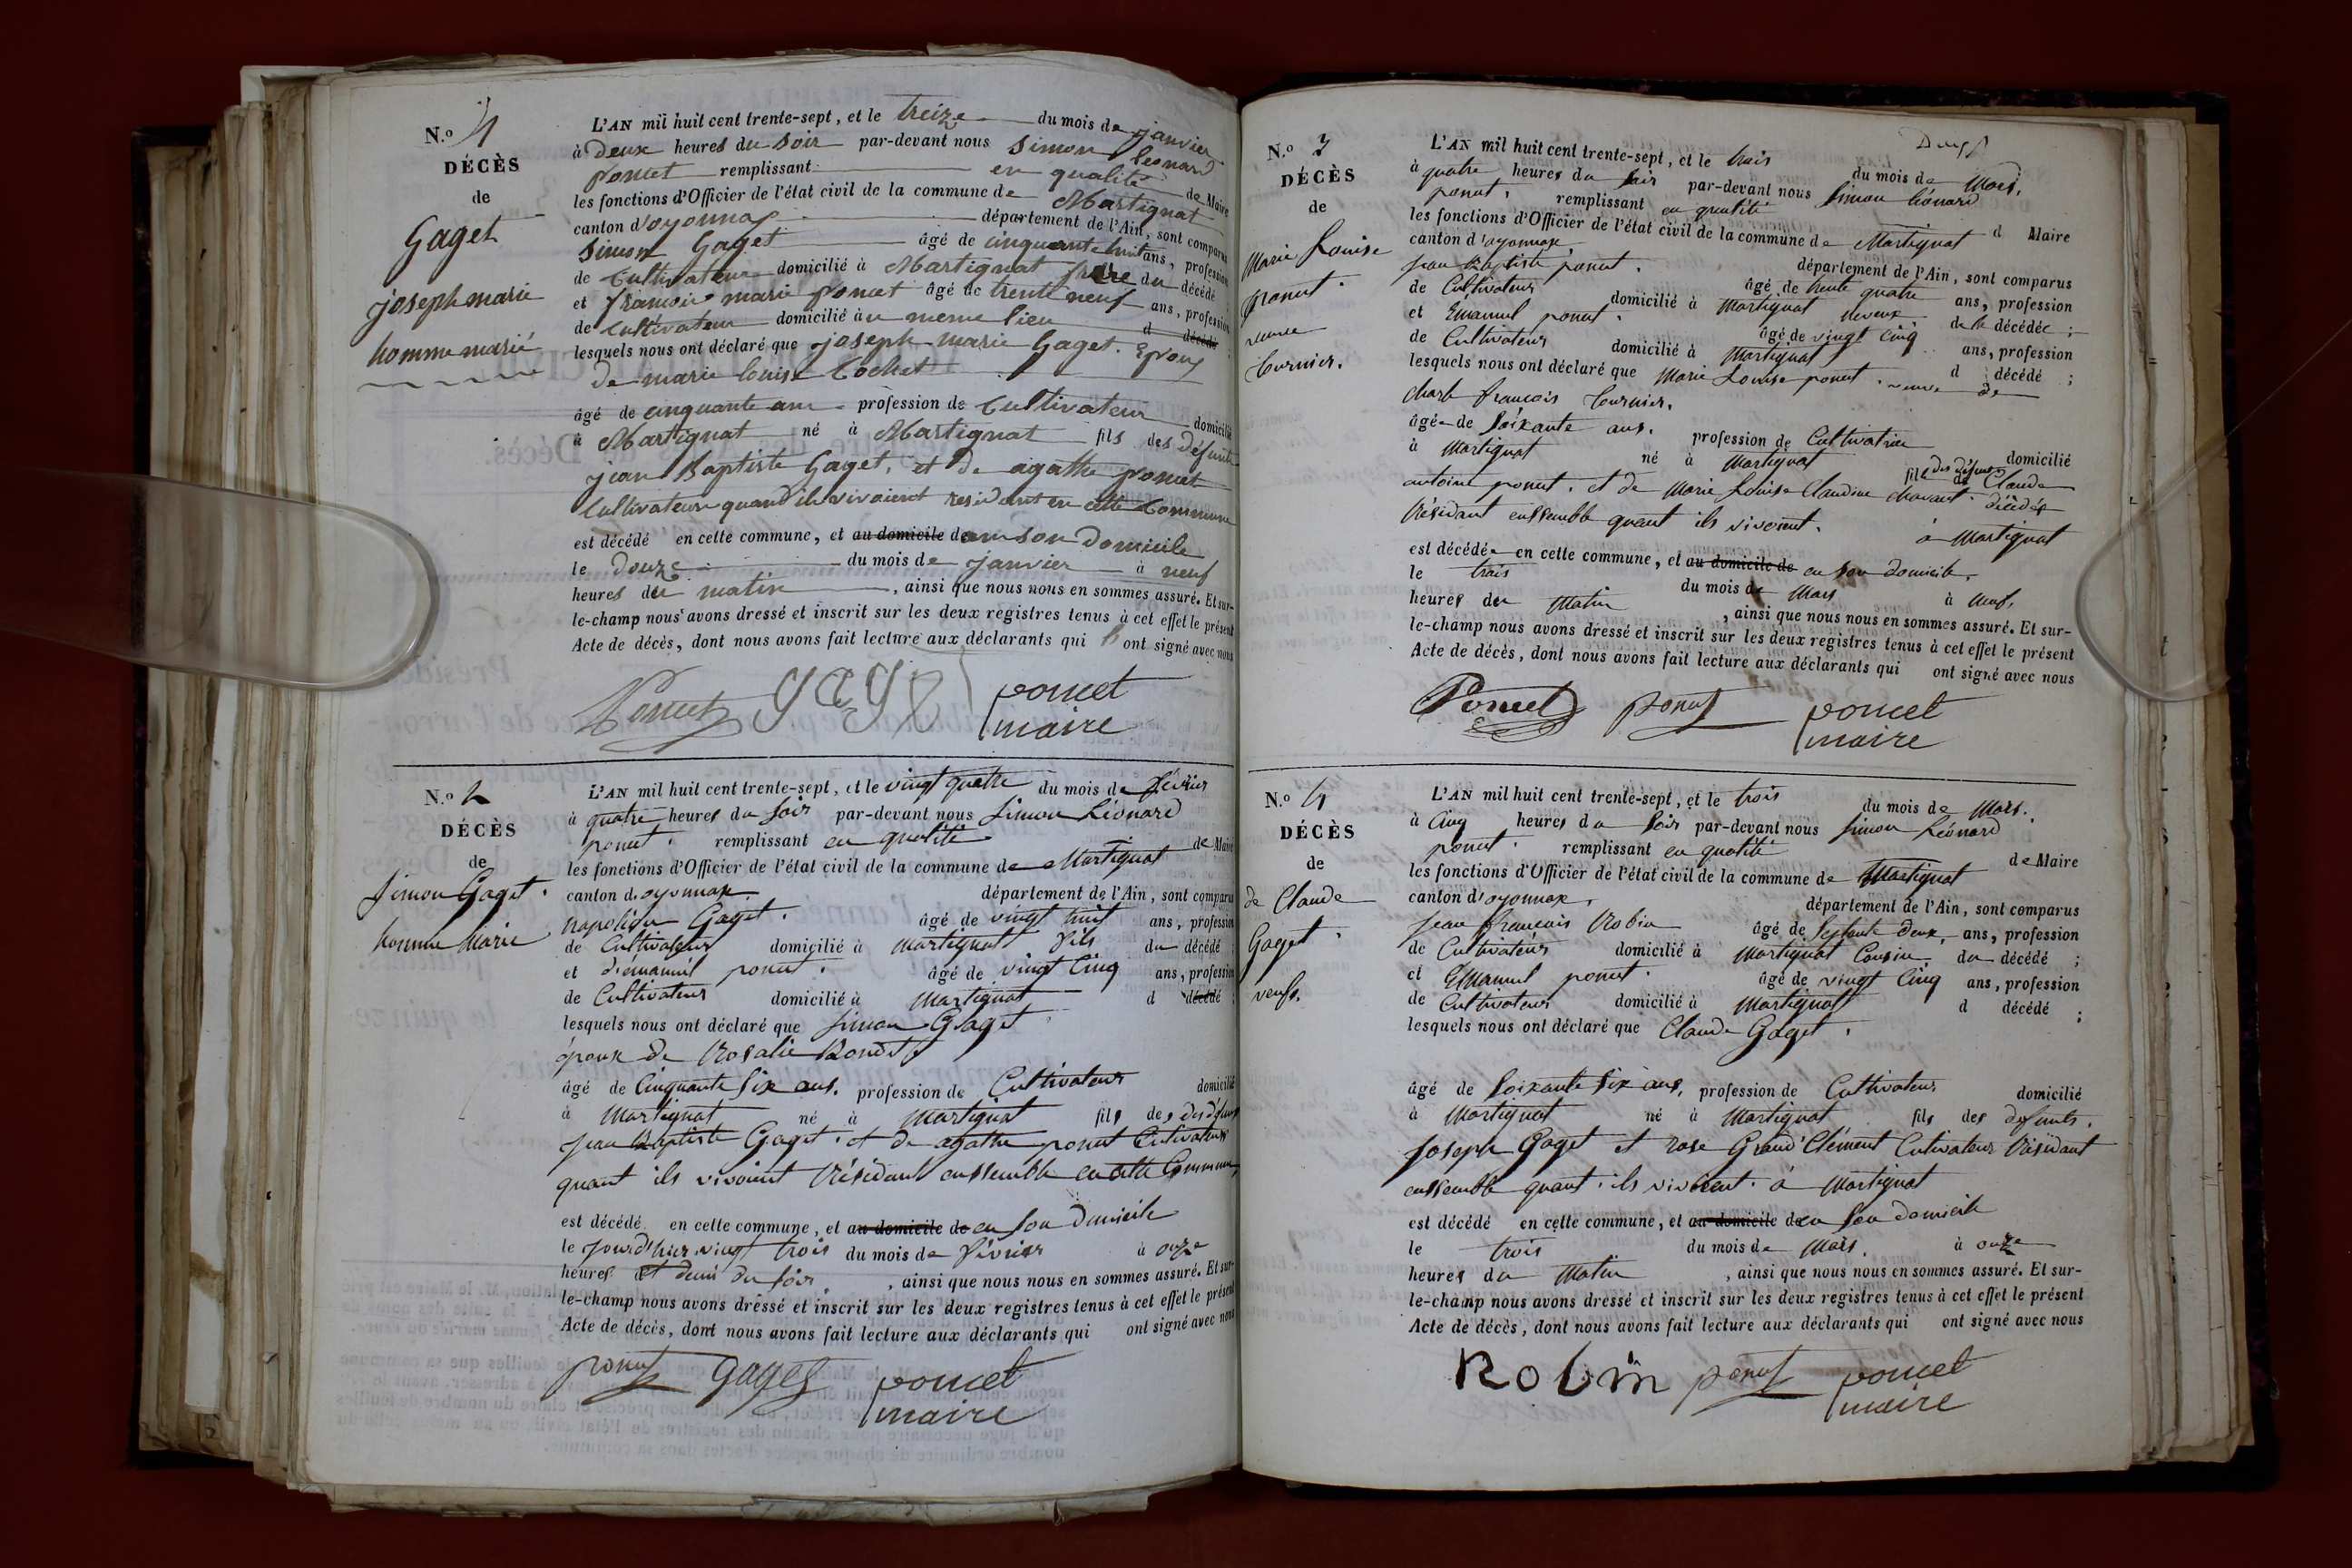 N.º 1
DÉCÈS
de
Gaget
joseph marie
homme marié
L'AN mil huit cent trente-sept, et le treize du mois de janvier
à deux heures du soir par-devant nous Simon Leonard
poncet remplissant en qualité de Maire
les fonctions d'Officier de l'état civil de la commune de Martignat
canton d'oyonnax département de l'Ain, sont comparus
Simon Gaget âgé de cinquante huit ans, profession
de Cultivateur domicilié à Martignat frere du décédé
et francois marie poncet âgé de trente neuf ans, profession
de Cultivateur domicilié au meme lieu d décédé
lesquels nous ont déclaré que joseph marie Gaget. Epoux
de marie louise Cochet
âgé de cinquante ans profession de Cultivateur domicilié
à Martignat né à Martignat fils des défunts
jean Baptiste Gaget, et de agathe poncet
Cultivateurs quand ils vivaient residant en cette Commune
est décédé en cette commune, et au domicile dans son domicile
le douze du mois de janvier à neuf
heures du matin, ainsi que nous nous en sommes assuré. Et sur-
le-champ nous avons dressé et inscrit sur les deux registres tenus à cet effet le présent
Acte de décès, dont nous avons fait lecture aux déclarants qui ont signé avec nous
Poncet gaget poncet
maire
N.º 2
DÉCÈS
de
Simon Gaget.
homme Marie
L'AN mil huit cent trente-sept, et le vingt quatre du mois de février
à quatre heures du soir par-devant nous Simon Léonard
poncet. remplissant en qualité de Maire
les fonctions d'Officier de l'état civil de la commune de Martignat
canton d'oyonnax département de l'Ain, sont comparus
napoléon Gaget. âgé de vingt huit ans, profession
de Cultivateur domicilié à Martignat fils du décédé
et d'émanuel poncet. âgé de vingt Cinq ans, profession
de Cultivateur domicilié à Martignat d décédé
lesquels nous ont déclaré que Simon Gaget
époux de Rosalie Rondet
âgé de Cinquante Six ans. profession de Cultivateur domicilié
à Martignat né à Martignat fils des des défunts
Jean Baptiste Gaget. et de agathe poncet Cultivateurs
quant ils vivoient Résidant enssemble en cette Commune
est décédé en cette commune, et au domicile de en Son Domicile
le Jourd'hier vingt trois du mois de février à onze
heures et demi du soir, ainsi que nous nous en sommes assuré. Et sur-
le-champ nous avons dressé et inscrit sur les deux registres tenus à cet effet le présent
Acte de décès, dont nous avons fait lecture aux déclarants qui ont signé avec nous
poncet gaget poncet
maire
N.º 3
DÉCÈS
de
Marie Louise
poncet.
veuve
tournier.
L'AN mil huit cent trente-sept, et le trois du mois de Mars.
à quatre heures du soir par-devant nous Simon Léonard
poncet. remplissant en qualité d Maire
les fonctions d'Officier de l'état civil de la commune de Martignat
canton d'oyonnax. département de l'Ain, sont comparus
Jean Baptiste poncet. âgé de trente quatre ans, profession
de Cultivateur domicilié à Martignat neveux de la décédée ;
et Émanuel poncet. âgé de vingt cinq ans, profession
de Cultivateur domicilié à Martignat d décédé ;
lesquels nous ont déclaré que Marie Louise poncet. veuve de
Charle francois tournier.
âgée de Soixante ans. profession de Cultivatrice domicilié
à Martignat né à Martignat fille des défunts de Claude
antoine poncet. et de Marie Louise Claudine Chavant. décédés
Résidant enssemble quant ils vivoient. à Martignat
est décédée en cette commune, et au domicile de en son domicile.
le trois du mois de Mars à neuf,
heures du Matin, ainsi que nous nous en sommes assuré. Et sur-
le-champ nous avons dressé et inscrit sur les deux registres tenus à cet effet le présent
Acte de décès, dont nous avons fait lecture aux déclarants qui ont signé avec nous
Poncet poncet poncet
maire
N.º 4
DÉCÈS
de
de Claude
Gaget.
veufs.
L'AN mil huit cent trente-sept, et le trois du mois de Mars.
à Cinq heures du Soir par-devant nous Simon Léonard
poncet. remplissant en qualité de Maire
les fonctions d'Officier de l'état civil de la commune de Martignat
canton d'oyonnax. département de l'Ain, sont comparus
Jean francois Robin âgé de Septante Deux, ans, profession
de Cultivateur domicilié à Martignat Cousin du décédé ;
et EManuel poncet. âgé de vingt Cinq ans, profession
de Cultivateur domicilié à Martignat d décédé ;
lesquels nous ont déclaré que Claude Gaget.
âgé de Soixante Six ans, profession de Cultivateur domicilié
à Martignat né à Martignat fils des défunts.
Joseph Gaget et rose Grand'Clément Cultivateur Résidant
enssemble quant. ils vivoient. à Martignat
est décédé en cette commune, et au domicile de en Son Domicile
le trois du mois de Mars. à onze
heures du Matin, ainsi que nous nous en sommes assuré. Et sur-
le-champ nous avons dressé et inscrit sur les deux registres tenus à cet effet le présent
Acte de décès, dont nous avons fait lecture aux déclarants qui ont signé avec nous
Robin poncet poncet
maire